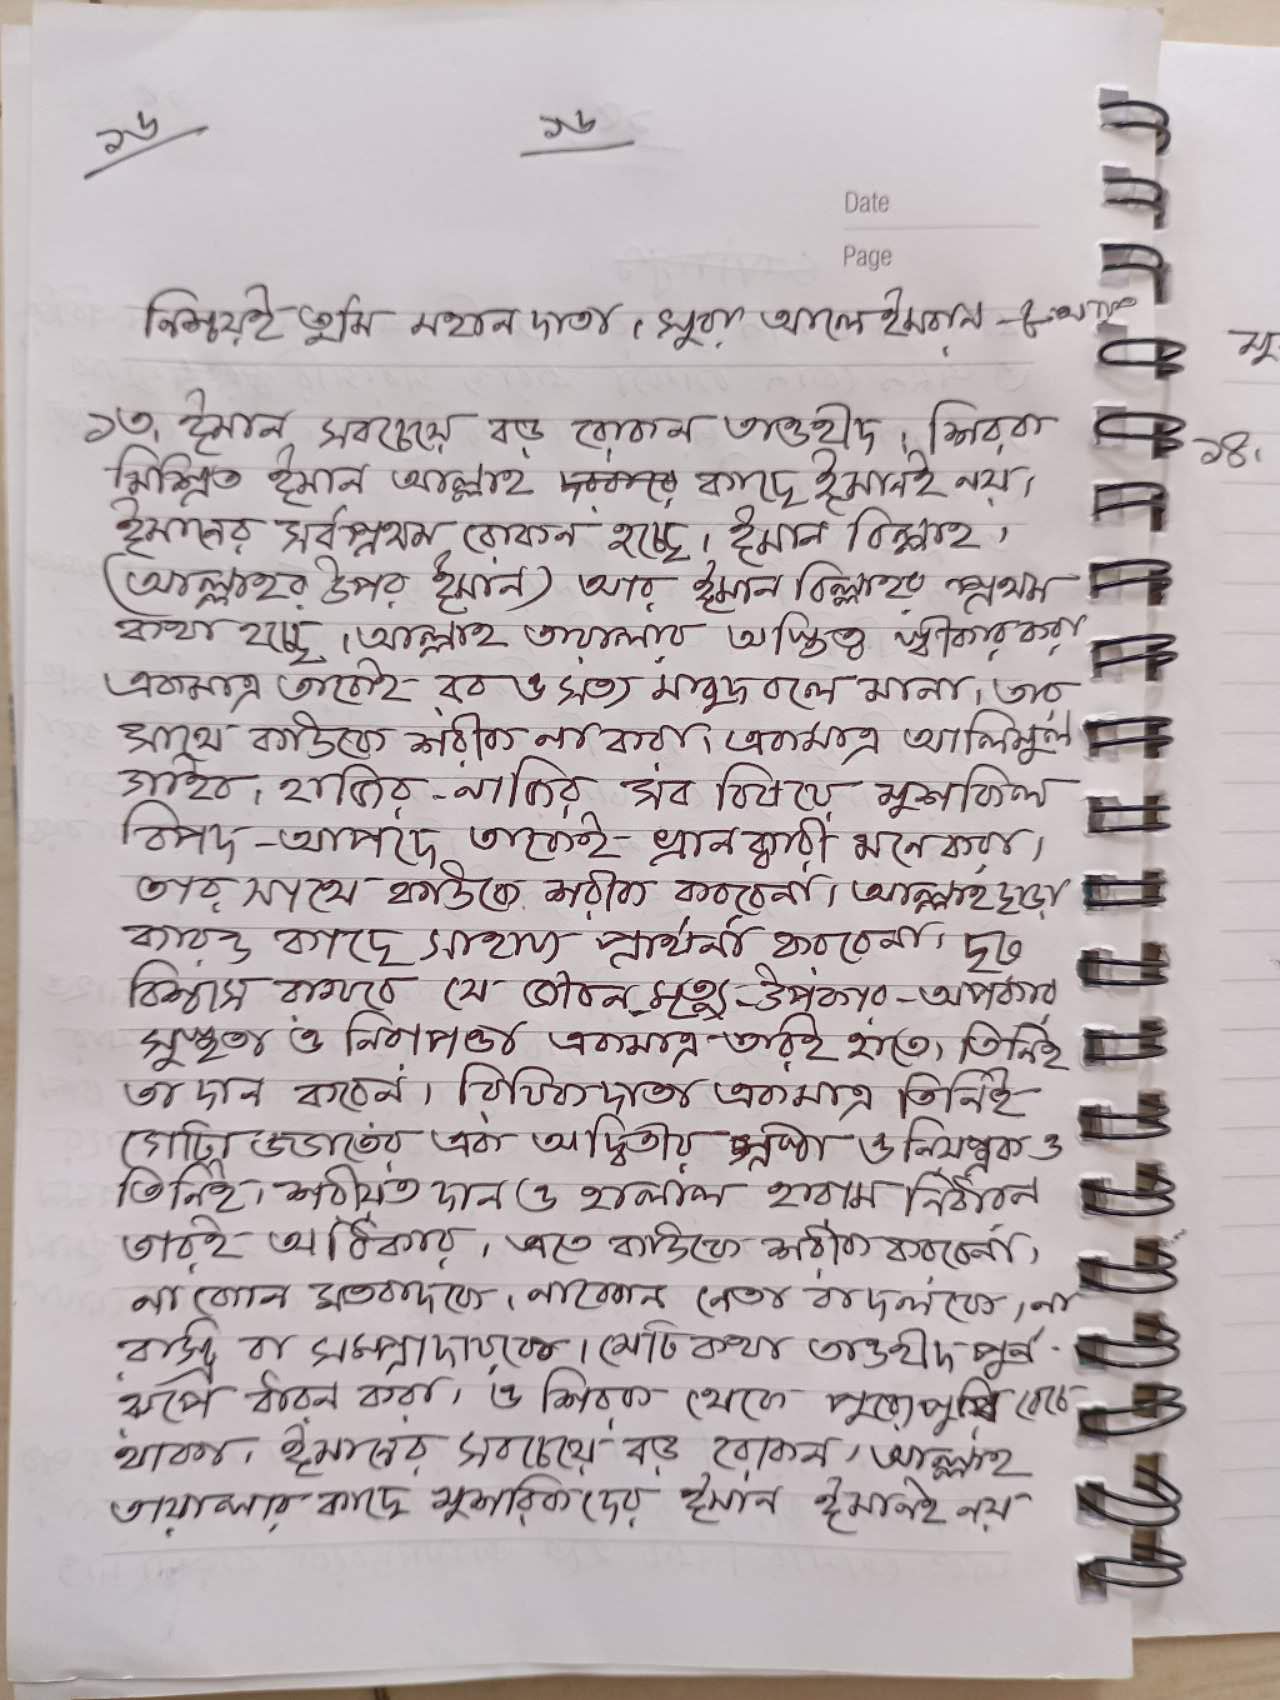 ১৬
১৬
Date
Page
নিশ্চয়ই তুমি মহান দাতা। সুরা আলে ইমরান - ৮
১৩। ঈমান সবচেয়ে বড় রোকন তাওহীদ। শিরক
মিশ্রিত ঈমান আল্লাহ কাছে ঈমানই নয়।
ঈমানের সর্বপ্রথম রোকন হচ্ছে। ঈমান বিল্লাহ।
(আল্লাহর উপর ঈমান) আর ঈমান বিল্লাহর প্রথম
কথা হচ্ছে। আল্লাহ তায়ালার অস্তিত্ব স্বীকার করা
একমাত্র তাকেই রব ও সত্য মাবুদ বলে মানা। তার
সাথে কাউকে শরীক না করা। একমাত্র আলিমুল
গাইব। হাজির-নাজির সব বিষয়ে মুশকিল
বিপদ-আপদে তাকেই ত্রানকারী মনে করা।
তার সাথে কাউকে শরীক করবেনা। আল্লাহ ছাড়া
কারও কাছে সাহায্য প্রার্থনা করবেনা। দৃঢ়
বিশ্বাস রাখবে যে জীবন মৃত্যু-উপকার-অপকার
সুস্থতা ও নিরাপত্তা একমাত্র তারই হাতে। তিনিই
তা দান করেন। রিযিকদাতা একমাত্র তিনিই
গোটা জগতের এক অদ্বিতীয় স্রষ্টা ও নিয়ন্ত্রক ও
তিনিই। শরীয়ত দান ও হালাল হারাম নির্ধারন
তারই অধিকার। এতে কাউকে শরীক করবেনা।
না কোন মতবাদকে। না কোন নেতা বা দলকে। না
রাষ্ট্র বা সমপ্রদায়কে। মোট কথা তাওহীদ পুর্ন
রূপে ধারন করা। ও শিরক থেকে পুরোপুরি বেচে
থাকা। ঈমানের সবচেয়ে বড় রোকন। আল্লাহ
তায়ালার কাছে মুশরিকদের ঈমান ঈমানই নয়
১৪।